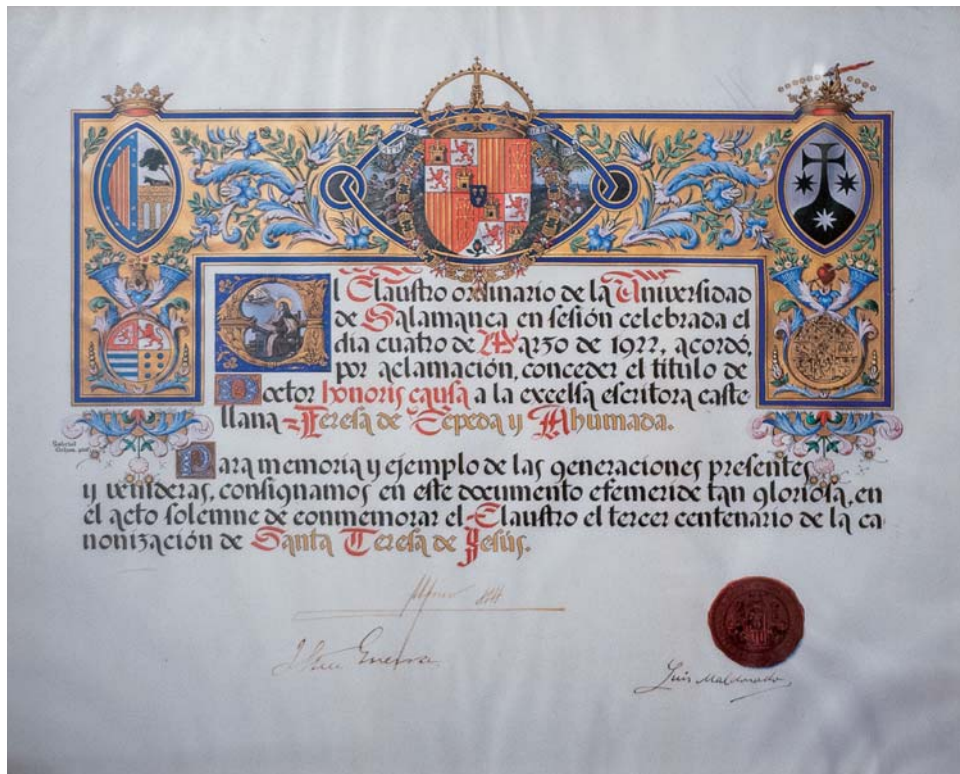 El Claustro ordinario de la Universidad
de Salamanca en sesión celebrada el
día cuatro de Marzo de 1922, acordó,
por aclamación, conceder el título de
Doctor honoris causa a la excelsa escritora caste
llana Teresa de Cepeda y Ahumada.
Para memoria y ejemplo de las generaciones presentes
y venideras, consignamos en este documento efemeride tan gloriosa, en
el acto solemne de conmemorar el Claustro el tercer centenario de la ca
nonización de Santa Teresa de Jesús.
Alfonso XIII
Luis Maldonado